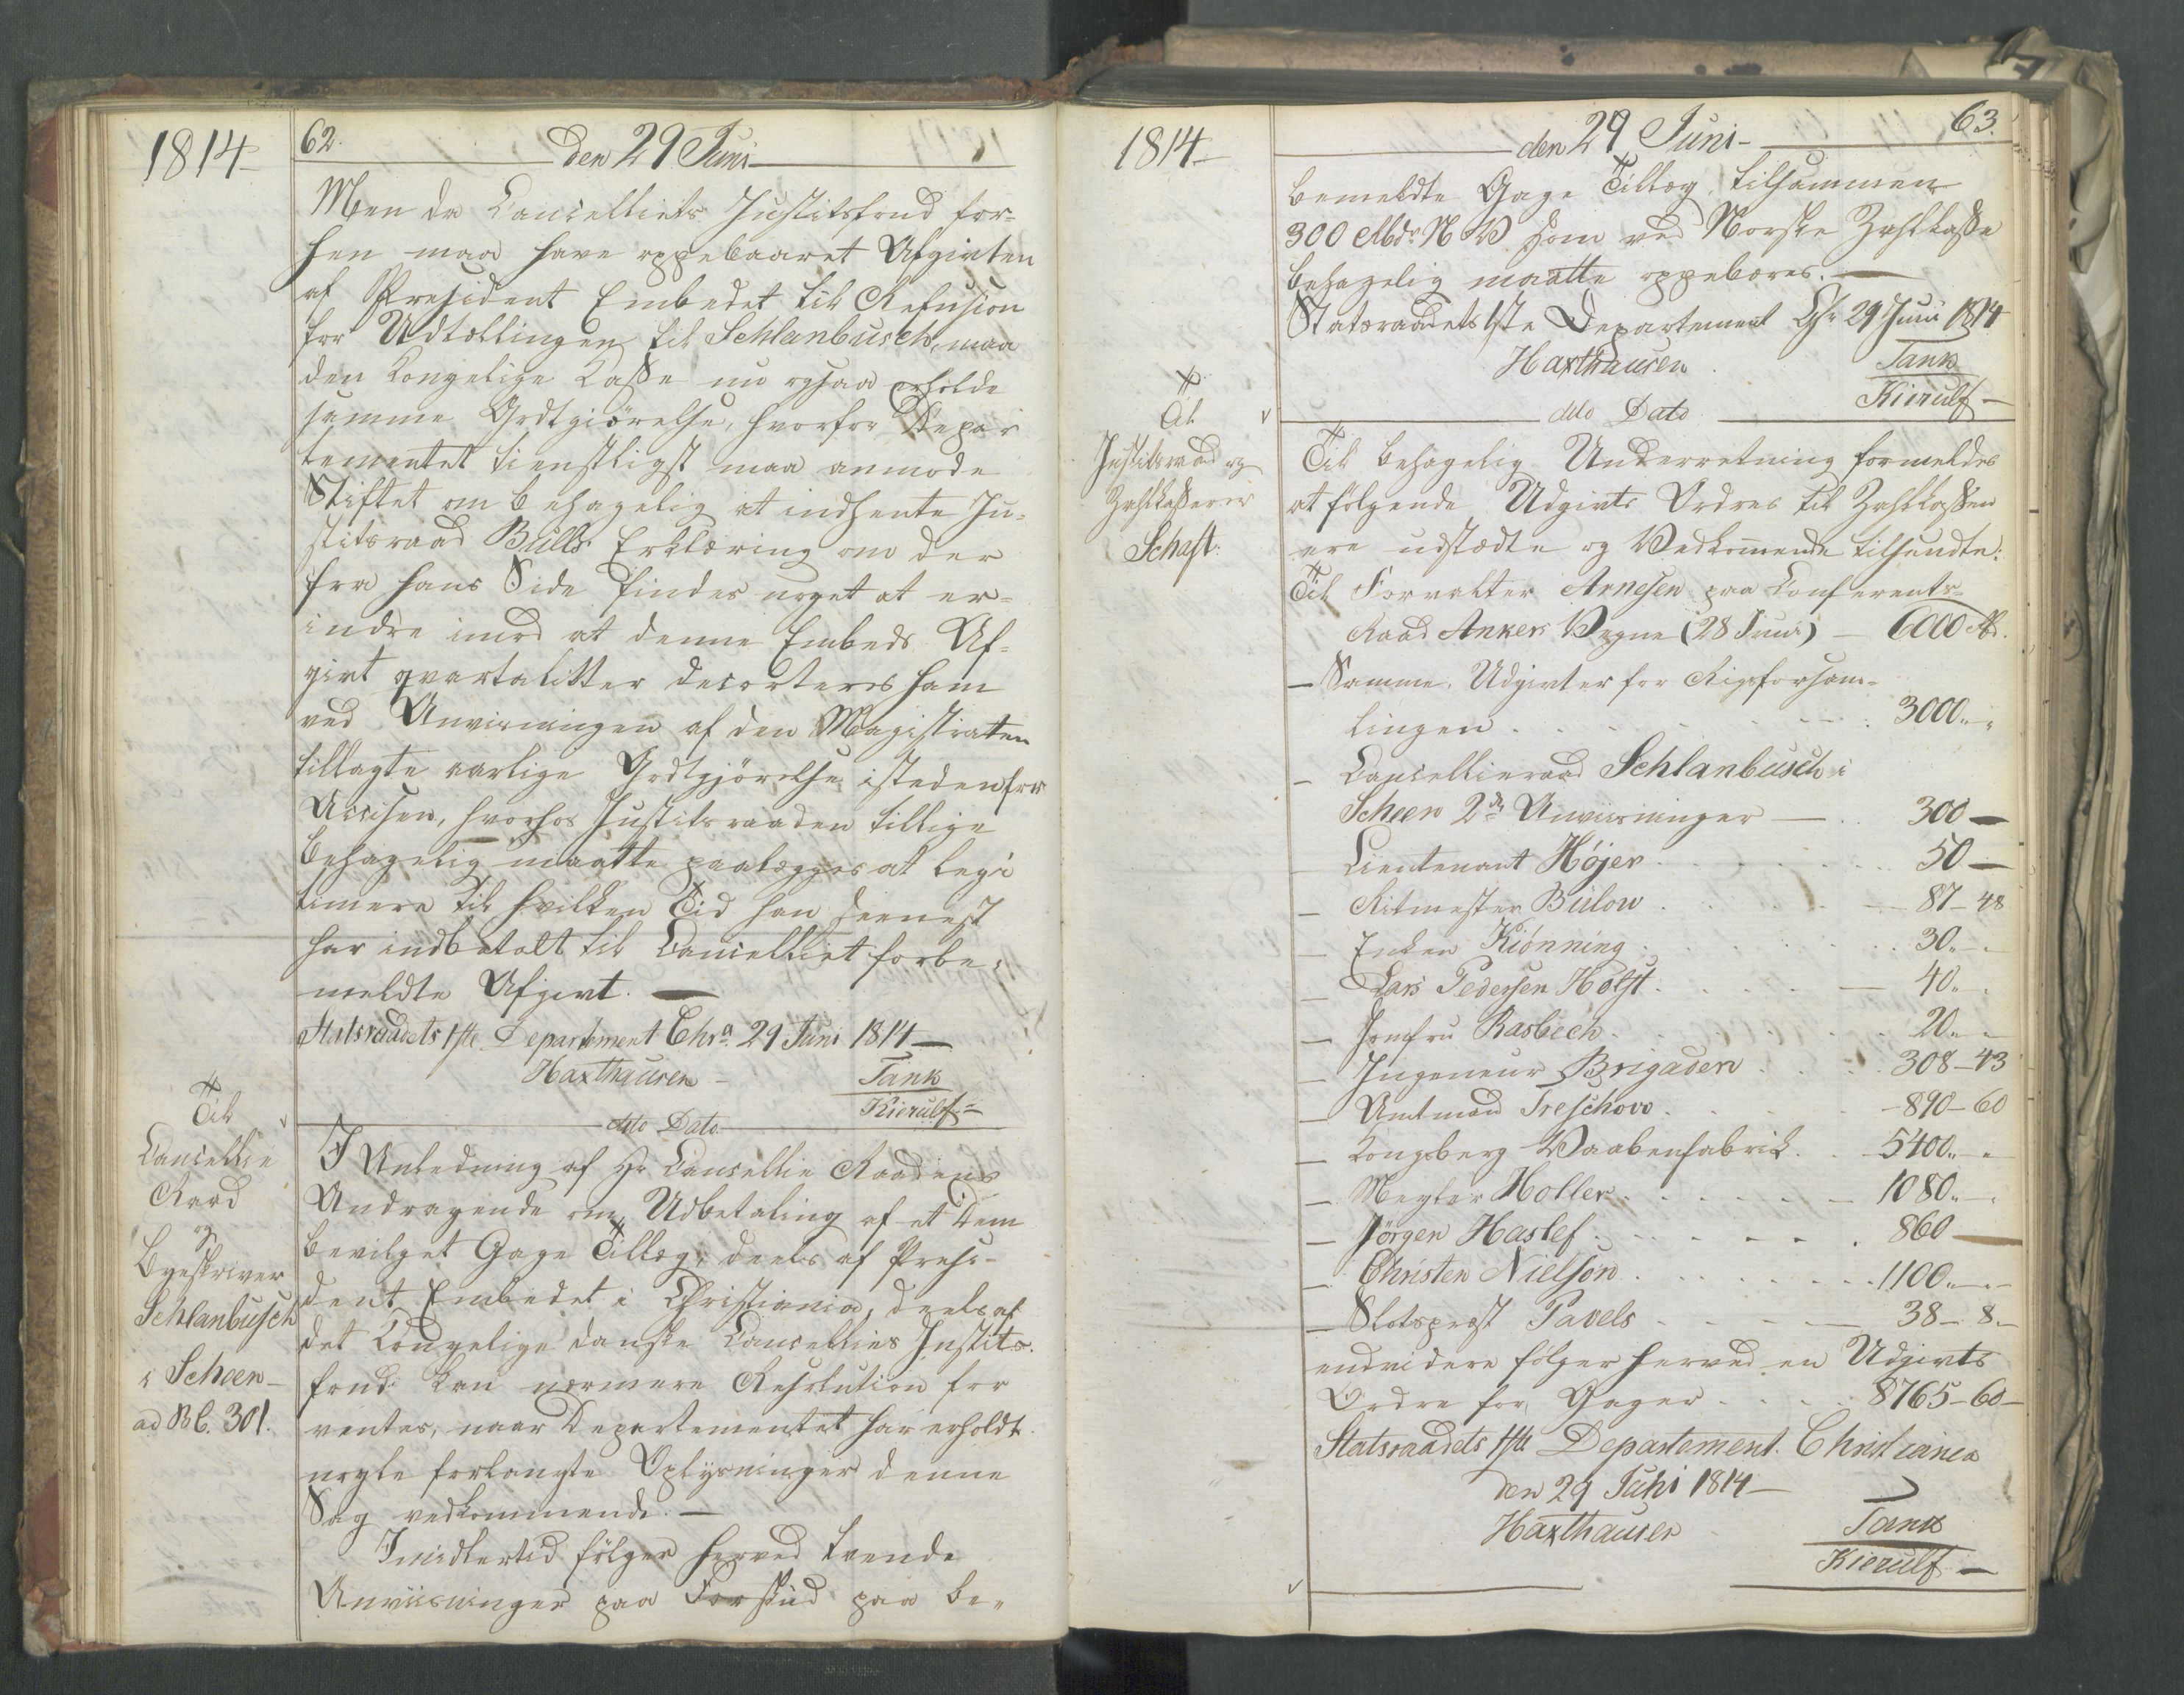 1814
62.
den 29 Juni
Men da Cancelliets Justitsfond for-
hen maa have oppebaaret Afgivten
af President Embedet til Refusion
for Udtællingen til Schlanbusch, maa
den Kongelige Casse nu ogsaa erholde
samme Godtgiörelse, hvorfor Depar
tementet tienstligst maa anmode
Stiftet om behagelig at indhente Ju-
stitsraad Bulls Erklæring om der
fra hans Side findes noget at er-
indre imod at denne Embeds Af-
givt qvartaliter decorteres ham
ved Anvisningen af den Magistraten
tillagte aarlige Godtgjörelse istedenfor
Accisen, hvorhos Justitsraaden tillige
behagelig maatte paalægges at legi
timere til hvilken Tid han seenest
har indbetalt til Cancelliet forbe-
meldte Afgivt.
Statsraadets 1ste Departement Chra. 29 Juni 1814
Haxthausen
Tank
Kierulf
dito Dato
Til
Cancellie
Raad
og
Byeskriver
Schlanbusch
i Scheen
ad Bb. 301.
I Anledning af Hr Cancellie Raadens
Andragende om Udbetaling af et Dem
bevilget Gage Tillæg, deels af Presi-
dent Embedet i Christiania, deels af
det Kongelige danske Cancellies Justits-
fond kan nærmere Resolution for
ventes, naar Departementet har erholdt
nogle forlangte Oplysninger denne
Sag vedkommende.
Imidlertid fölger herved tvende
Anviisninger paa Forskud paa be-
1814
den 29 Juni
63.
bemeldte Gage Tillæg, tilsammen
300 Rbdr N V som ved Norske Zahlkasse
behagelig maatte oppebæres.
Statsraadets 1ste Departement Chr 29 Juni 1814
Haxthausen
Tank
Kierulf
dito Dato
Til
Justitsraad og
Zahlkasserer
Schaft.
Til behagelig Underretning formeldes
at fölgende Udgivts Ordres til Zahlkassen
ere udstædte og Vedkommende tilsendte:
Til Forvalter Arnesen paa Conferents-
Raad Ankers Vegne (28 Juni) 6000 Rb.
Samme, Udgivter for Rigsforsam-
lingen 3000
Cancellieraad Schlanbusch i
Scheen 2de Anviisninger 300
Lieutenant Höjer 50
Ritmester Bülow 87-48
Enken Kiönning 30
Lars Pedersen Holst 40
Jomfru Rasbech 20
Ingeneur Brigaden 308-43
Amtmand Treschow 890-60
Kongsberg Vaabenfabrik 5400
Megler Holler 1080
Jörgen Haslef 860
Christen Nielson 1100
Slotspræst Pavels 38-8
endvidere fölger herved en Udgivts
Ordre for Gager 8765-60
Statsraadets 1ste Departement. Christiania
den 29 Juni 1814
Haxthausen
Tank
Kierulf